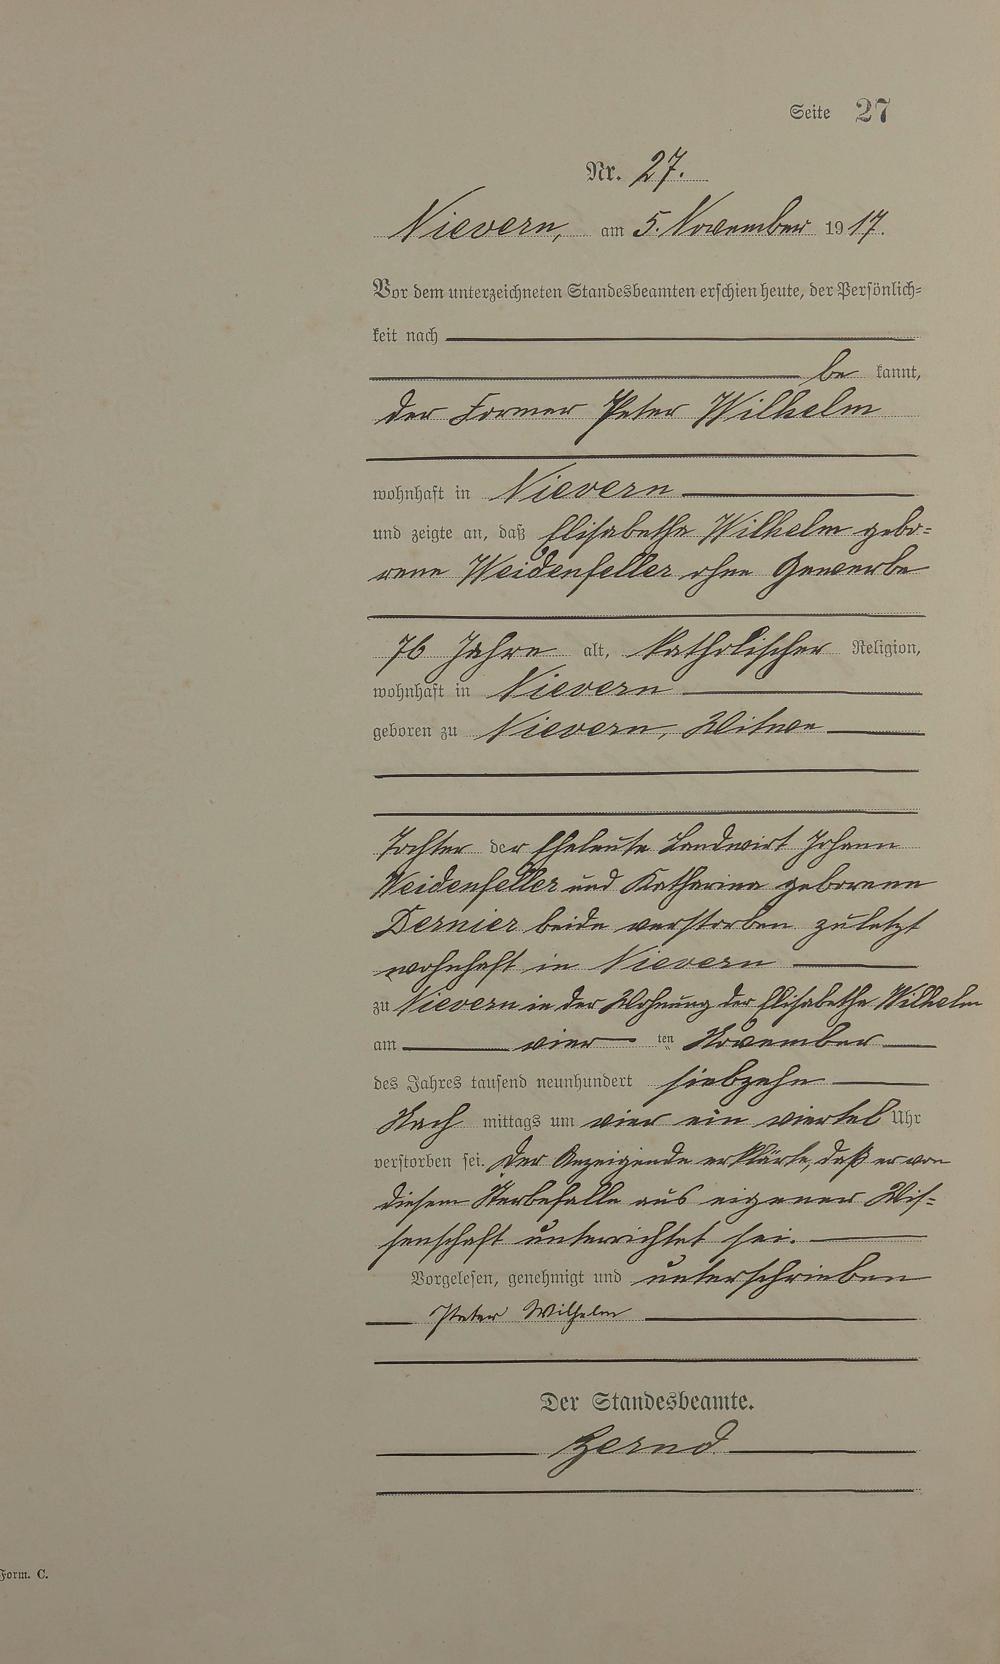 Seite 27
Nr. 27.
Nievern, am 5. November 1917.
Vor dem unterzeichneten Standesbeamten erschien heute, der Persönlich-
keit nach
be kannt,
der Former Peter Wilhelm
wohnhaft in Nievern
und zeigte an, daß Elisabetha Wilhelm gebo-
rene Weidenfeller ohne Gewerbe
76 Jahre alt, katholischer Religion,
wohnhaft in Nievern
geboren zu Nievern, Witwe
Tochter der Eheleute Landwirt Johann
Weidenfeller und Katharina geborenen
Dernier beide verstorben zuletzt
wohnhaft in Nievern
zu Nievern in der Wohnung der Elisabetha Wilhelm
am vier ten November
des Jahres tausend neunhundert siebzehn
Nach mittags um vier ein viertel Uhr
verstorben sei. Der Anzeigende erklärte, daß er von
diesem Sterbefalle aus eigener Wis-
senschaft unterrichtet sei.
Vorgelesen, genehmigt und unterschrieben
Peter Wilhelm
Der Standesbeamte.
Form. C.